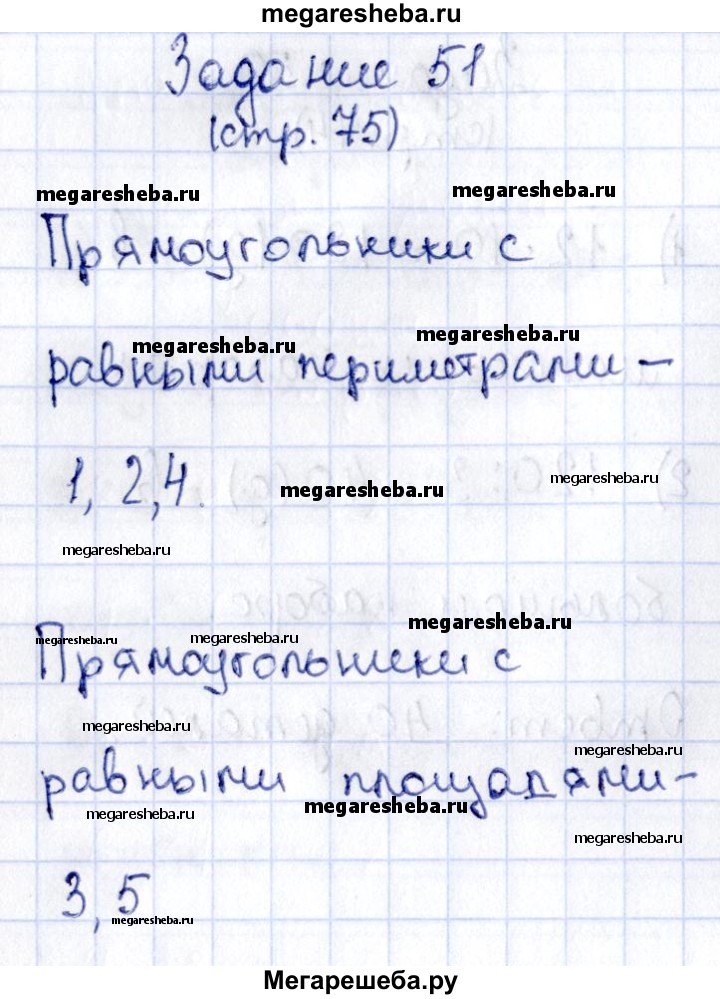 megaresheba.ru
Задание 51
(стр. 75)
megaresheba.ru
megaresheba.ru
Прямоугольники с
megaresheba.ru
megaresheba.ru
равными периметрами –
1, 2, 4.
megaresheba.ru
megaresheba.ru
megaresheba.ru
megaresheba.ru
megaresheba.ru
megaresheba.ru
Прямоугольники с
megaresheba.ru
megaresheba.ru
равными площадями –
megaresheba.ru
megaresheba.ru
megaresheba.ru
3, 5
megaresheba.ru
Мегарешеба.ру